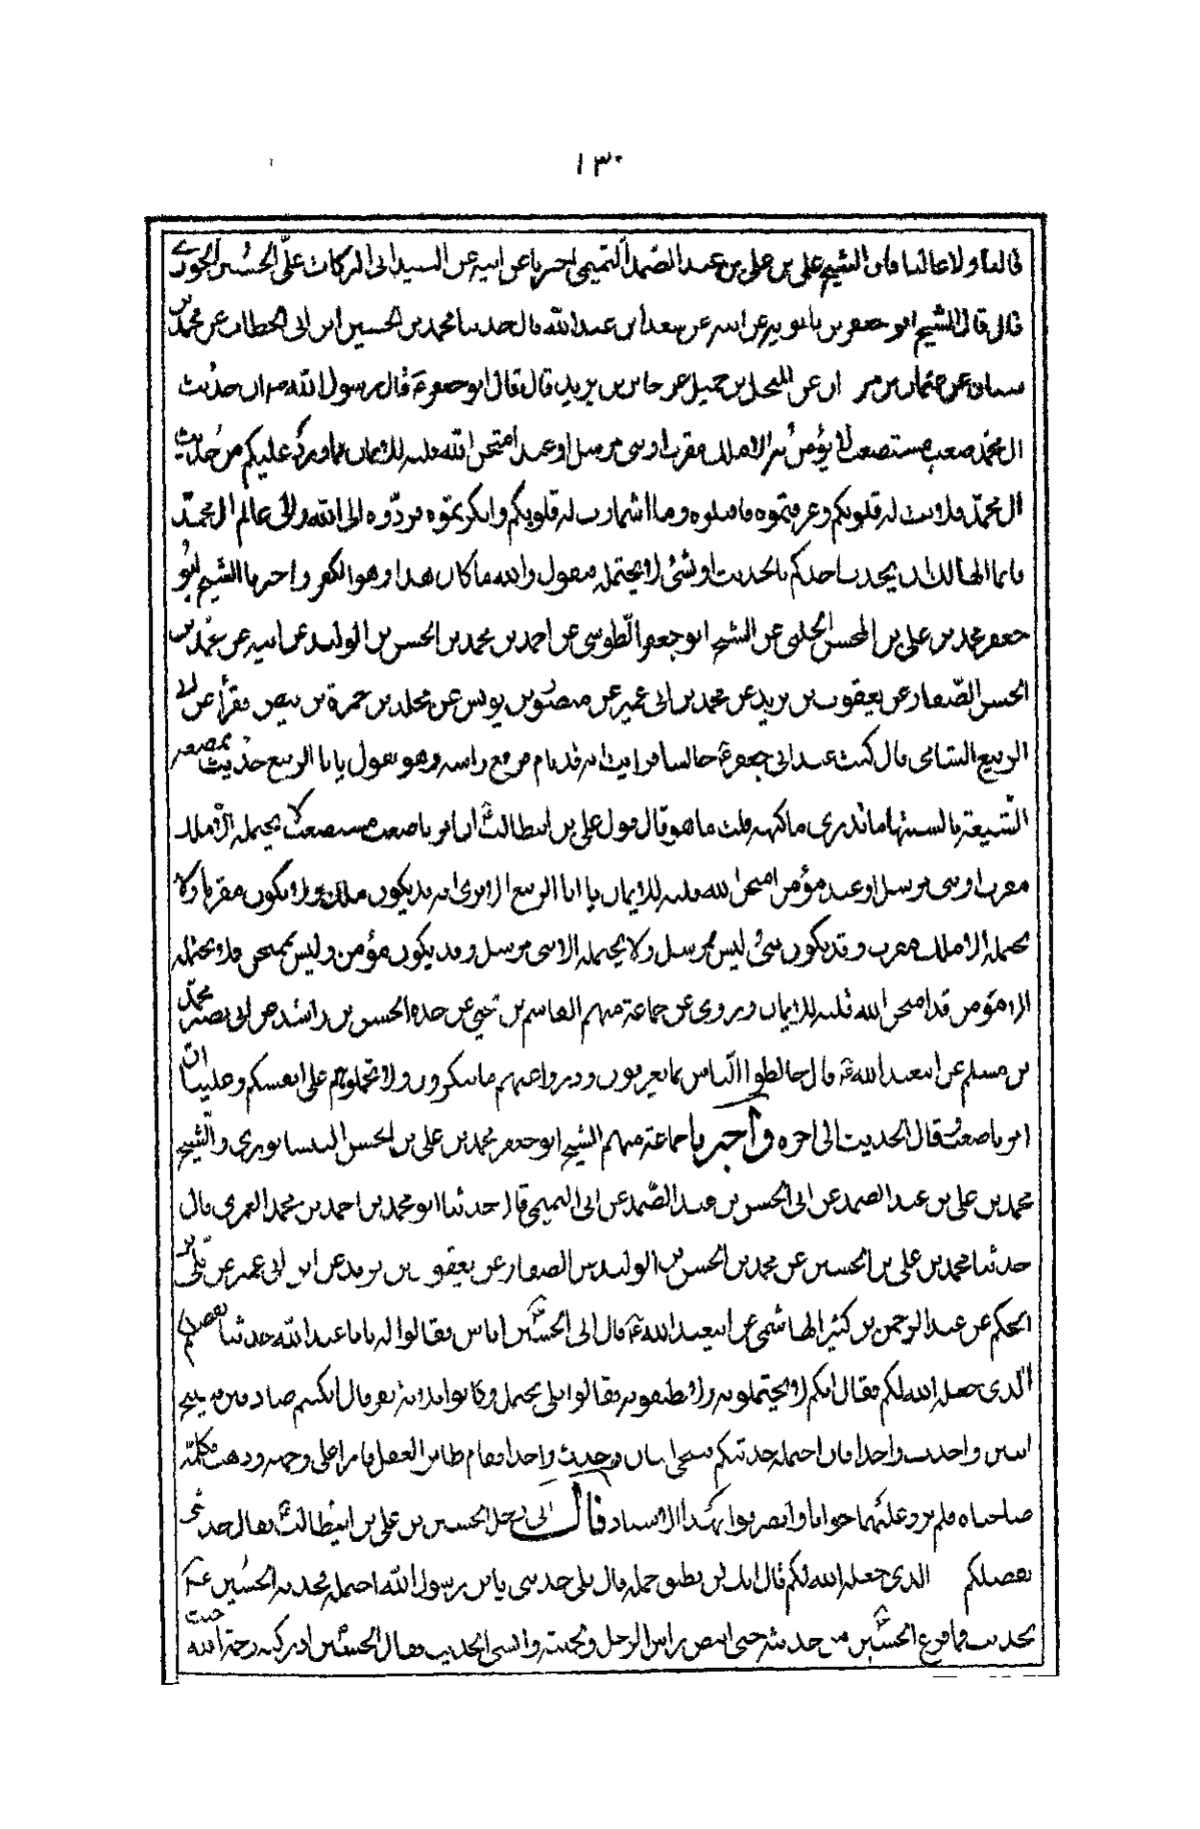 ١٣٠
قالا ولا عالما وان الشيخ علي بن علي بن عبد الصمد التميمي اخبرنا عن ابيه عن السيد ابى البركات علي الحسين الجوزي
قال قال الشيخ ابو جعفر بن بابويه عن ابيه عن سعد بن عبد الله قال حدثنا محمد بن الحسين ابن ابى الخطاب عن محمد بن
سنان عن عمار بن مروان عن المنخل بن جميل عن جابر بن يزيد قال قال ابو جعفر ع قال رسول الله ص ان حديث
ال محمد صعب مستصعب لا يؤمن به الا ملك مقرب او نبى مرسل او عبد امتحن الله قلبه للايمان فما ورد عليكم من حديث
ال محمد فلانت له قلوبكم وعرفتموه فاقبلوه وما اشمازت له قلوبكم وانكرتموه فردوه الى الله والى عالم ال محمد
فانما الهالك ان يحدث احدكم بالحديث او بشئ لا يحتمله فيقول والله ما كان هذا وهو الكفر واخبرنا الشيخ ابو
جعفر محمد بن علي بن المحسن الحلبى عن الشيخ ابو جعفر الطوسى عن احمد بن محمد بن الحسن بن الوليد عن ابيه عن محمد بن
الحسن الصفار عن يعقوب بن يزيد عن محمد بن ابى عمير عن منصور بن يونس عن مخلد بن حمزة بن نصر عن ابى
الربيع الشامى قال كنت عند ابى جعفر ع جالسا فرايت انه قد نام فرفع راسه وهو يقول يابا الربيع حديث تمضغه
الشيعة بالسنتها ما تدرى ما كنهه قلت ما هو قال قول علي بن ابيطالب ع ان امرنا صعب مستصعب لا يحتمله الا ملك
مقرب او نبى مرسل او عبد مؤمن امتحن الله قلبه للايمان يا ابا الربيع الا ترى انه قد يكون ملك ولا يكون مقربا ولا
يحمله الا ملك مقرب وقد يكون نبى ليس بمرسل ولا يحتمله الا نبى مرسل وقد يكون مؤمن وليس بممتحن فلا يحتمله
الا مؤمن قد امتحن الله قلبه للايمان وروى عن جماعة منهم القاسم بن يحيى عن جده الحسن بن راشد عن ابى بصير محمد
بن مسلم عن ابيعبد الله ع قال خالطوا الناس بما يعرفون ودروا عنهم ما ينكرون ولا تحملوهم على انفسكم وعلينا ان
امرنا صعب قال الحديث الى اخره واخبرنا جماعة منهم الشيخ ابو جعفر محمد بن علي بن المحسن النيسابورى والشيخ
محمد بن علي بن عبد الصمد عن ابى الحسن بن عبد الصمد عن ابى التميمى قال حدثنا ابو محمد بن احمد بن محمد العمرى قال
حدثنا محمد بن علي بن الحسين عن محمد بن الحسن بن الوليد عن الصفار عن يعقوب بن يزيد عن ابن ابى عمير عن علي بن
الحكم عن عبد الرحمن بن كثير الهاشمى عن ابيعبد الله ع قال اتى الحسين ع اناس فقالوا له يابا عبد الله حدثنا بفضلكم
الذى جعل الله لكم فقال انكم لا تحتملونه ولا تطيقونه فقالوا بلى نحتمل قال ان كنتم صادقين فليتنح
اثنين واحدث واحدا فان احتمله حدثتكم فتنحى اثنان وحدث واحدا فقام طائر العقل فامر على وجهه وذهب فكلمه
صاحباه فلم يرد عليهما جوابا وانصرفوا بهذا الاسناد قال اتى رجل الحسين بن علي بن ابيطالب ع فقال حدثنى
بفضلكم الذى جعله الله لكم قال انك لن تطيق حمله قال بلى حدثنى يابن رسول الله احتمله فحدثه الحسين ع
بحديث فما فرغ الحسين ع من حديثه حتى ابيض راس الرجل ولحيته وانسى الحديث فقال الحسين ع ادركته رحمة الله حيث